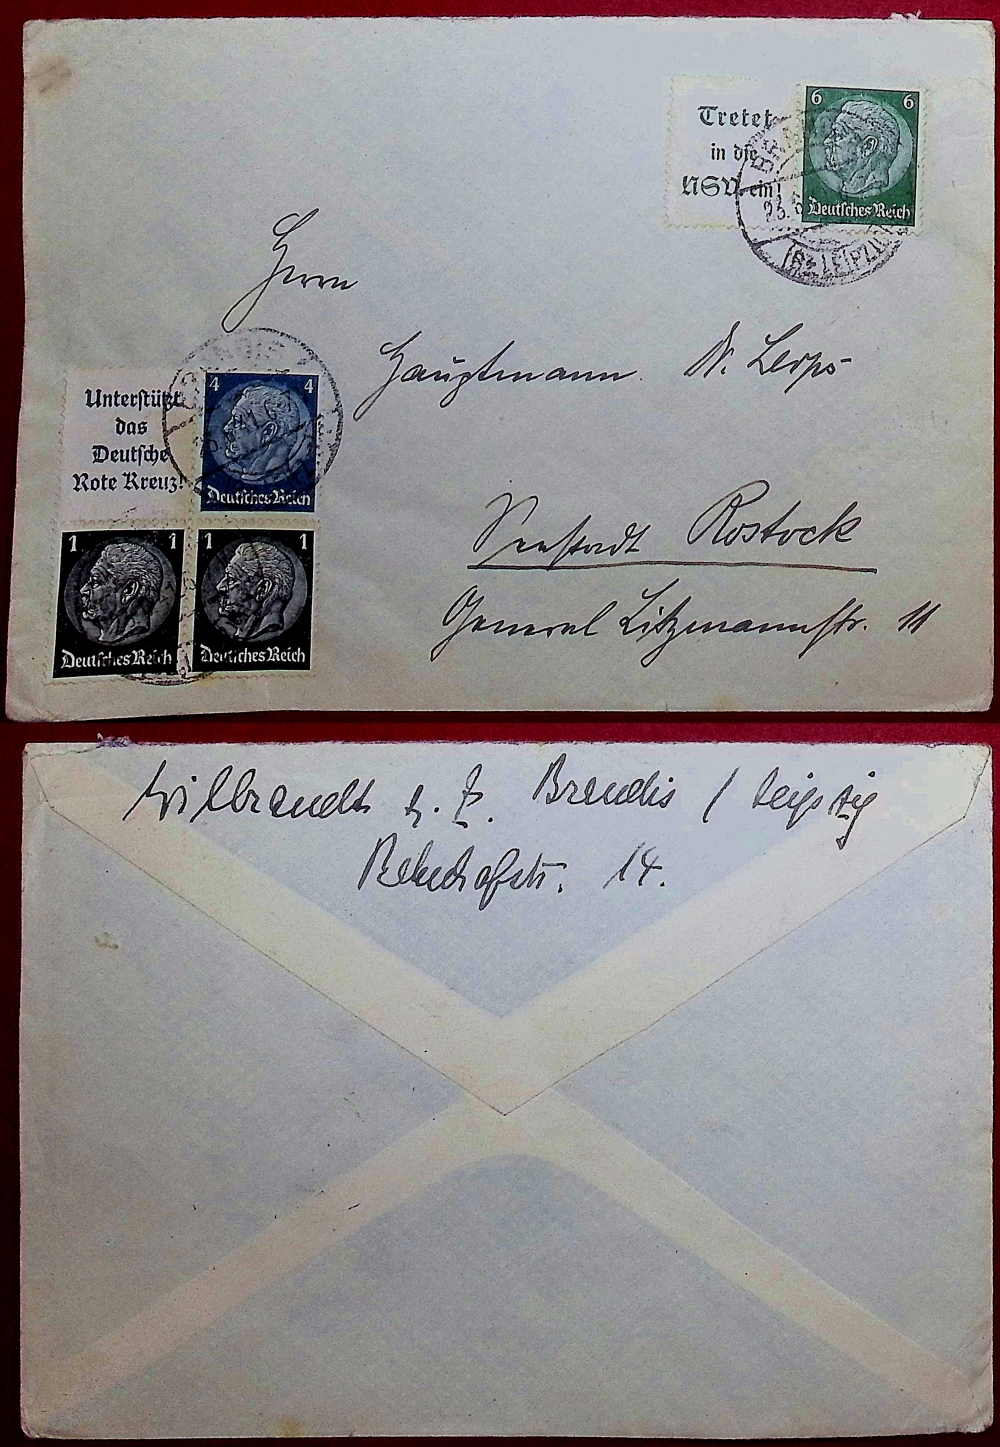 Tretet
in die
NSV. ein!
6 6
Deutsches Reich
23.6
Herrn
Hauptmann Dr. Leips
Unterstützt
das
Deutsche
Rote Kreuz!
4 4
Deutsches Reich
BRANDIS
Seestadt Rostock
1 1
Deutsches Reich
1 1
Deutsches Reich
General Litzmannstr. 11
Wilbrandt z. Z. Brandis / Leipzig
14.